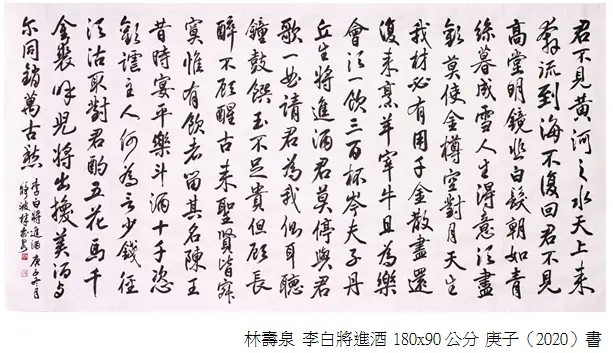 君不見黃河之水天上来
奔流到海不復回君不見
高堂明鏡悲白髮朝如青
絲暮成雪人生得意須盡
歡莫使金樽空對月天生
我材必有用千金散盡還
復来烹羊宰牛且為樂
會須一飲三百杯岑夫子丹
丘生將進酒君莫停與君
歌一曲請君為我側耳聽
鐘鼓饌玉不足貴但願長
醉不願醒古来聖賢皆寂
寞惟有飲者留其名陳王
昔時宴平樂斗酒十千恣
歡謔主人何為言少錢徑
須沽取對君酌五花馬千
金裘呼兒將出換美酒与
尔同銷萬古愁
李白將進酒庚子
林壽泉 李白將進酒 180x90公分 庚子（2020）書